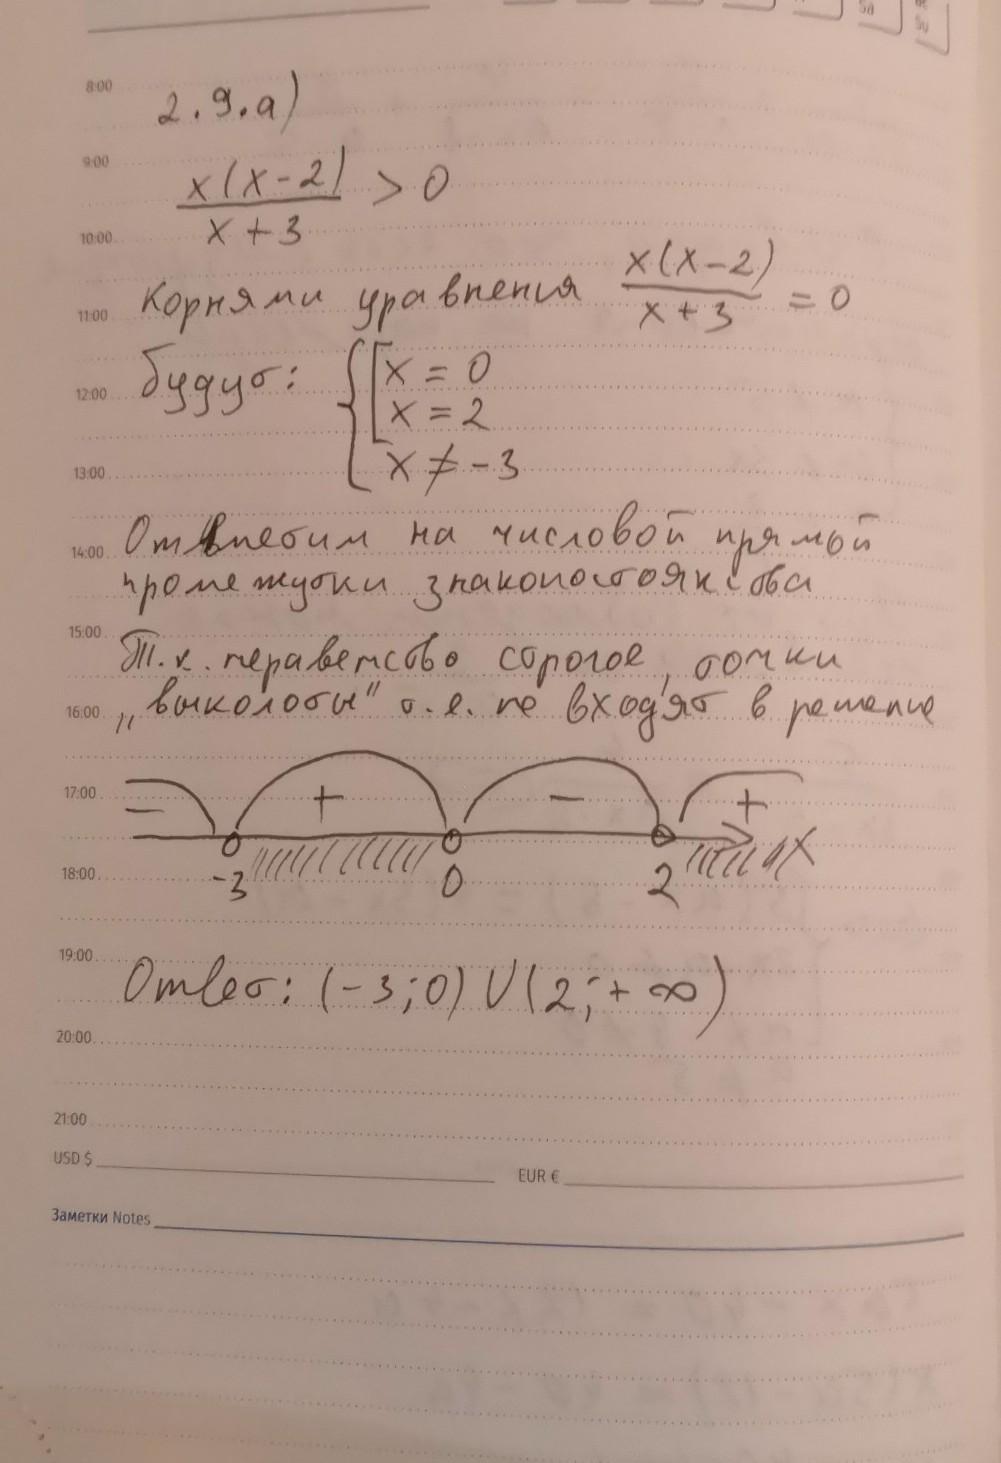 8:00
2.9.а)
9:00
x(x-2)
/
x+3
> 0
10:00
Корнями уравнения x(x-2)/x+3 = 0
11:00
Будут: { [ x = 0
12:00
x = 2
x ≠ -3
13:00
Отметим на числовой прямой
14:00
промежутки знакопостоянства
15:00
Т.к. неравенство строгое, точки
„выколоты" т.е. не входят в решение
16:00
17:00
− + − +
-3 0 2 X
18:00
19:00
Ответ: (-3;0) U (2;+∞)
20:00
21:00
USD $ EUR €
Заметки Notes